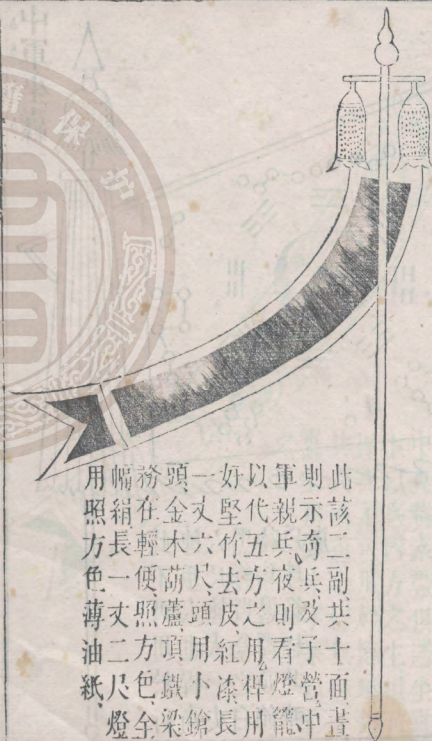 此該二副共十面晝
則示奇兵及子營中
軍親兵夜則看燈籠
以代五方之用桿用
好堅竹去皮紅漆長
一丈六尺頭用小鎗
頭金木葫蘆頂鐵梁
務在輕便照方色全
幅絹長一丈二尺燈
用照方色薄油紙
籍保护